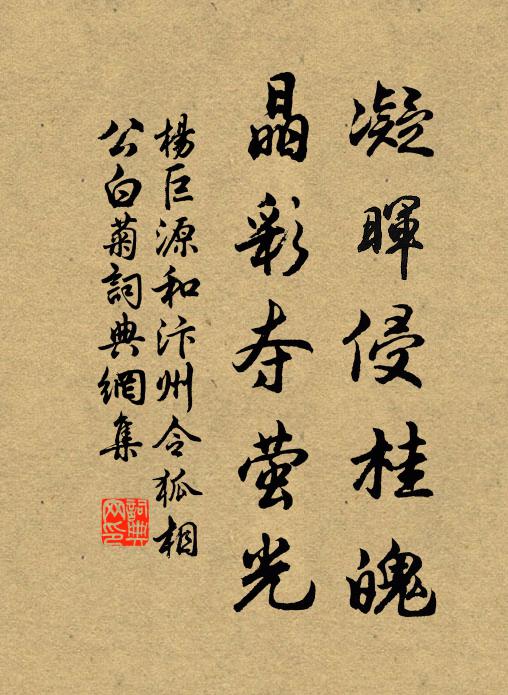 凝暉侵桂魄
晶彩夺萤光
楊巨源和汴州令狐相
公白菊詞典網集
詞典网印